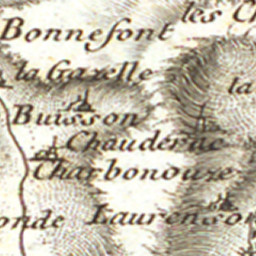 les C
Bonnefont
la Gazelle
la
Buisson
Chauderac
Charbonouze
onde
Laurenson